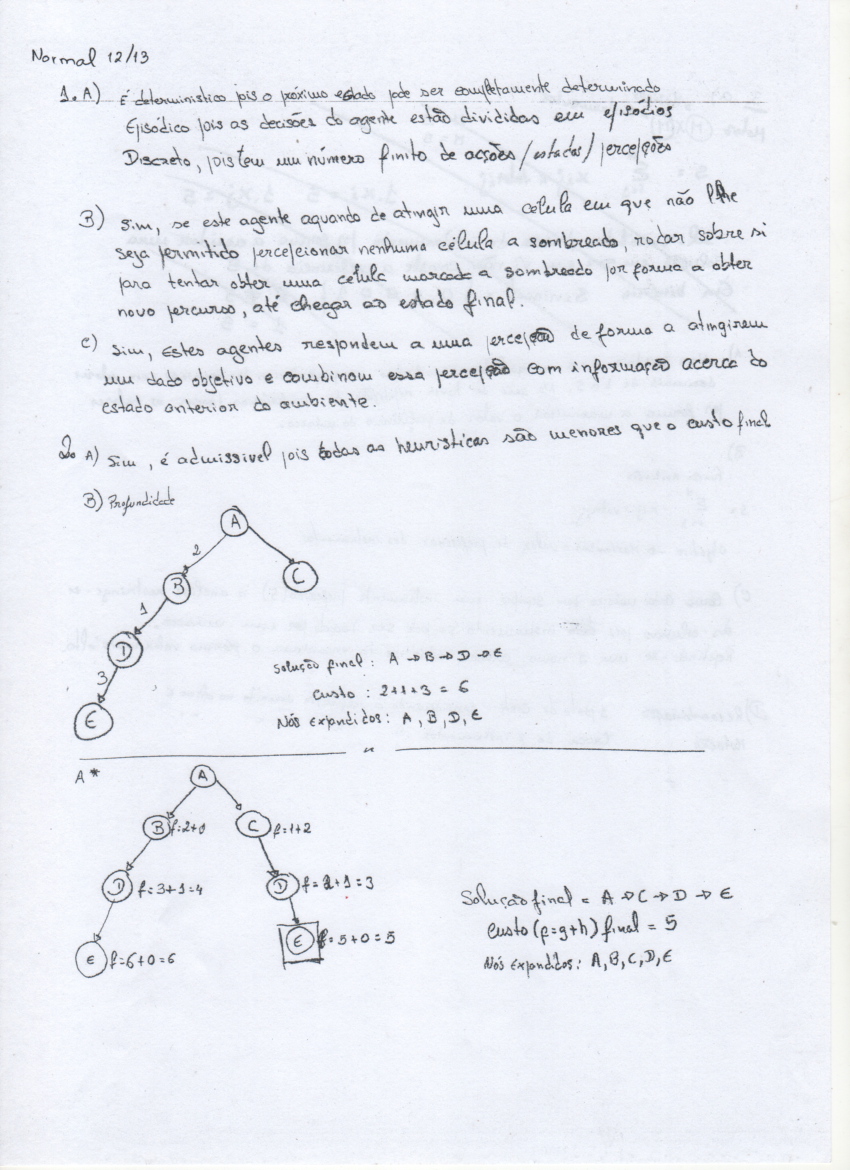 Normal 12/13
1. A) É deterministico pois o próximo estado pode ser completamente determinado
Episódico pois as decisões do agente estão divididas em episódios
Discreto, pois tem um número finito de acções/estados/percepções
B) Sim, se este agente aquando de atingir uma célula em que não lhe
seja permitido percepcionar nenhuma célula a sombreado, rodar sobre si
para tentar obter uma célula marcada a sombreado por forma a obter
novo percurso, até chegar ao estado final.
C) Sim, Estes agentes respondem a uma percepção de forma a atingirem
um dado objetivo e combinam essa percepção com informação acerca do
estado anterior do ambiente.
2. A) Sim, é admissivel pois todas as heuristicas são menores que o custo final
B) Profundidade
A
2
B C
1
D
3
E
Solução final: A → B → D → E
custo: 2+1+3 = 6
Nós Expandidos: A, B, D, E
A*
A
B f=2+0 C f=1+2
D f=3+1=4 D f=2+1=3
E f=6+0=6 E f=5+0=5
Solução final = A → C → D → E
Custo (f=g+h) final = 5
Nós Expandidos: A, B, C, D, E